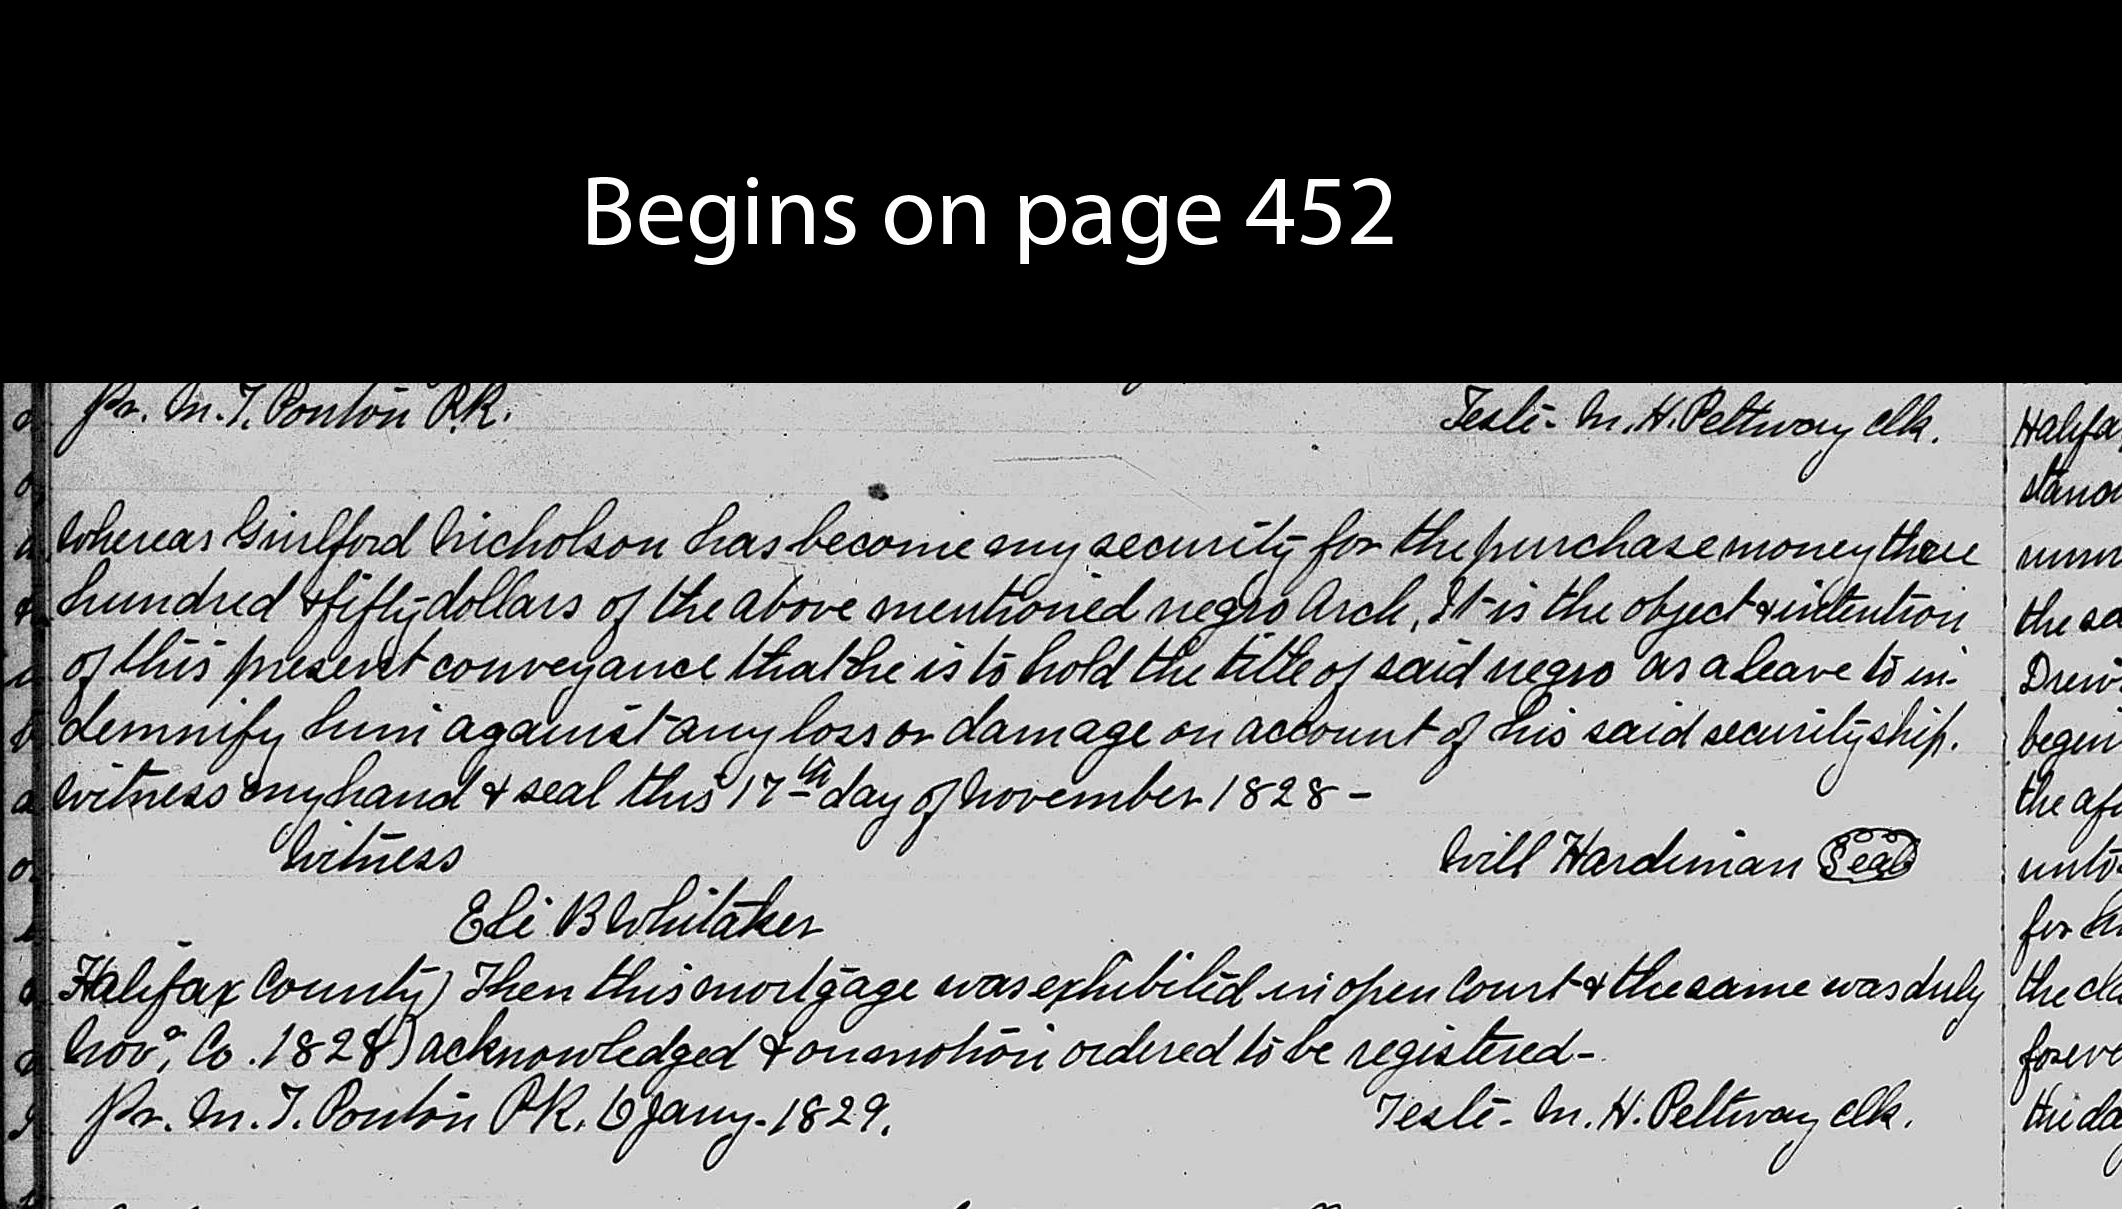 Begins on page 452
Pr. M. T. Ponton P.R. Teste- M. H. Pettway Clk.
Whereas Guilford Nicholson has become my security for the purchase money three
hundred & fifty dollars of the above mentioned negro Arch, It is the object & intention
of this present conveyance that he is to hold the title of said negro as a leave to in-
demnify him against any loss or damage on account of his said securityship.
Witness my hand & seal this 17th day of November 1828 -
Witness Will Hardiman Seal
Eli B Whitaker
Halifax County) Then this mortgage was exhibited in open Court & the same was duly
Novr, Co. 1828) acknowledged & on motion ordered to be registered -
Pr. M. T. Ponton P.R. 6 Jany. 1829. Teste- M. H. Pettway Clk.
Halifa
stand
the sa
Drew
begin
the af
unto
for
the cla
foreve
the da